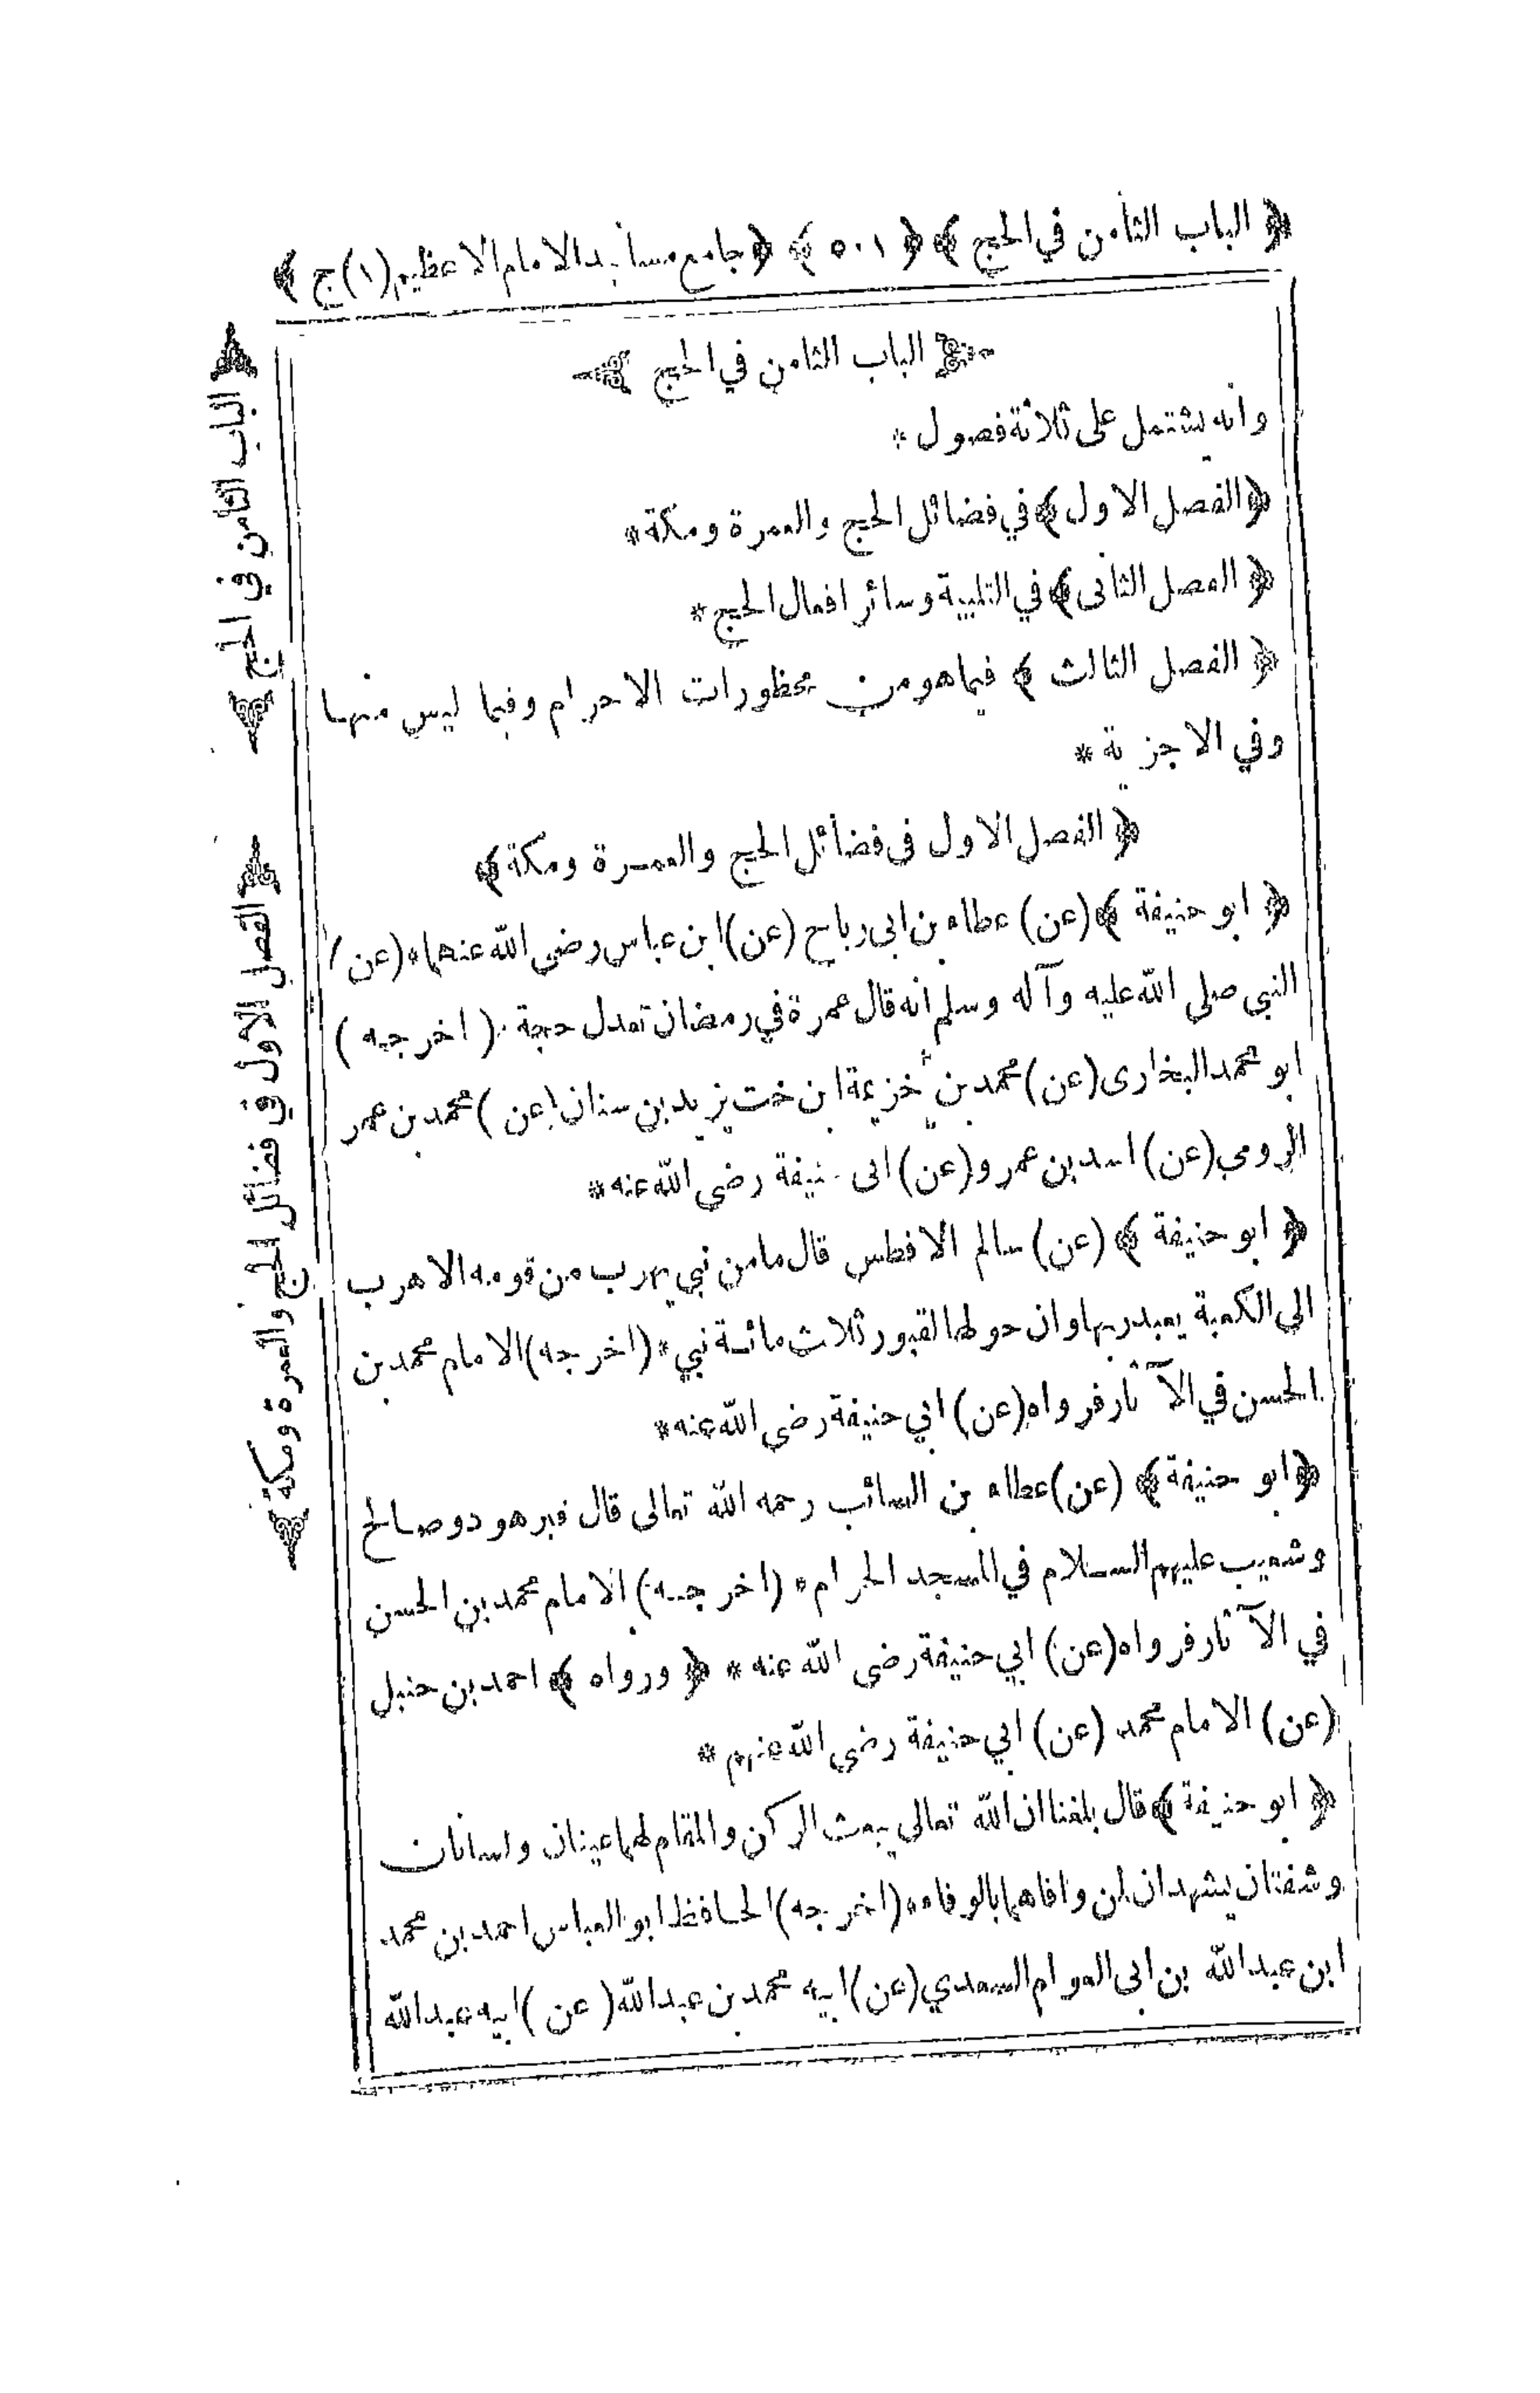 ﴿ الباب الثامن في الحج ﴾ ﴿ ٥٠١ ﴾ ﴿ جامع مسانيد الامام الاعظم (١) ج ﴾
﴿ الباب الثامن في الحج ﴾
وانه يشتمل على ثلاثة فصول *
﴿ الفصل الاول ﴾ في فضائل الحج والعمرة ومكة *
﴿ الفصل الثانى ﴾ في التلبية وسائر افعال الحج *
﴿ الفصل الثالث ﴾ فيما هو من محظورات الاحرام وفيما ليس منها
وفي الاجزية *
﴿ الفصل الاول فى فضائل الحج والعمرة ومكة ﴾
﴿ ابو حنيفة ﴾ (عن) عطاء بن ابى رباح (عن) ابن عباس رضى الله عنهما * (عن)
النبى صلى الله عليه وآله وسلم انه قال عمرة في رمضان تعدل حجة * (اخرجه)
ابو محمد البخارى (عن) محمد بن خزيمة ابن خت يزيد بن سنان (عن) محمد بن عمر
الرومي (عن) اسد بن عمرو (عن) ابى حنيفة رضى الله عنه *
﴿ ابو حنيفة ﴾ (عن) سالم الافطس قال ما من نبي يهرب من قومه الا هرب
الى الكعبة يعبد ربها وان حولها لقبور ثلاث مائة نبي * (اخرجه) الامام محمد بن
الحسن في الآثار فرواه (عن) ابي حنيفة رضى الله عنه *
﴿ ابو حنيفة ﴾ (عن) عطاء بن السائب رحمه الله تعالى قال قبر هود وصالح
وشعيب عليهم السلام في المسجد الحرام * (اخرجه) الامام محمد بن الحسن
في الآثار فرواه (عن) ابي حنيفة رضى الله عنه * ﴿ ورواه ﴾ احمد بن حنبل
(عن) الامام محمد (عن) ابي حنيفة رضى الله عنهم *
﴿ ابو حنيفة ﴾ قال بلغنا ان الله تعالى يبعث الركن والمقام لهما عينان ولسانان
وشفتان يشهدان لمن وافاهما بالوفاء * (اخرجه) الحافظ ابو العباس احمد بن محمد
ابن عبد الله بن ابى العوام السعدي (عن) ابيه محمد بن عبد الله (عن) ابيه عبد الله
﴿ الباب الثامن في الحج ﴾
﴿ الفصل الاول في فضائل الحج والعمرة ومكة ﴾